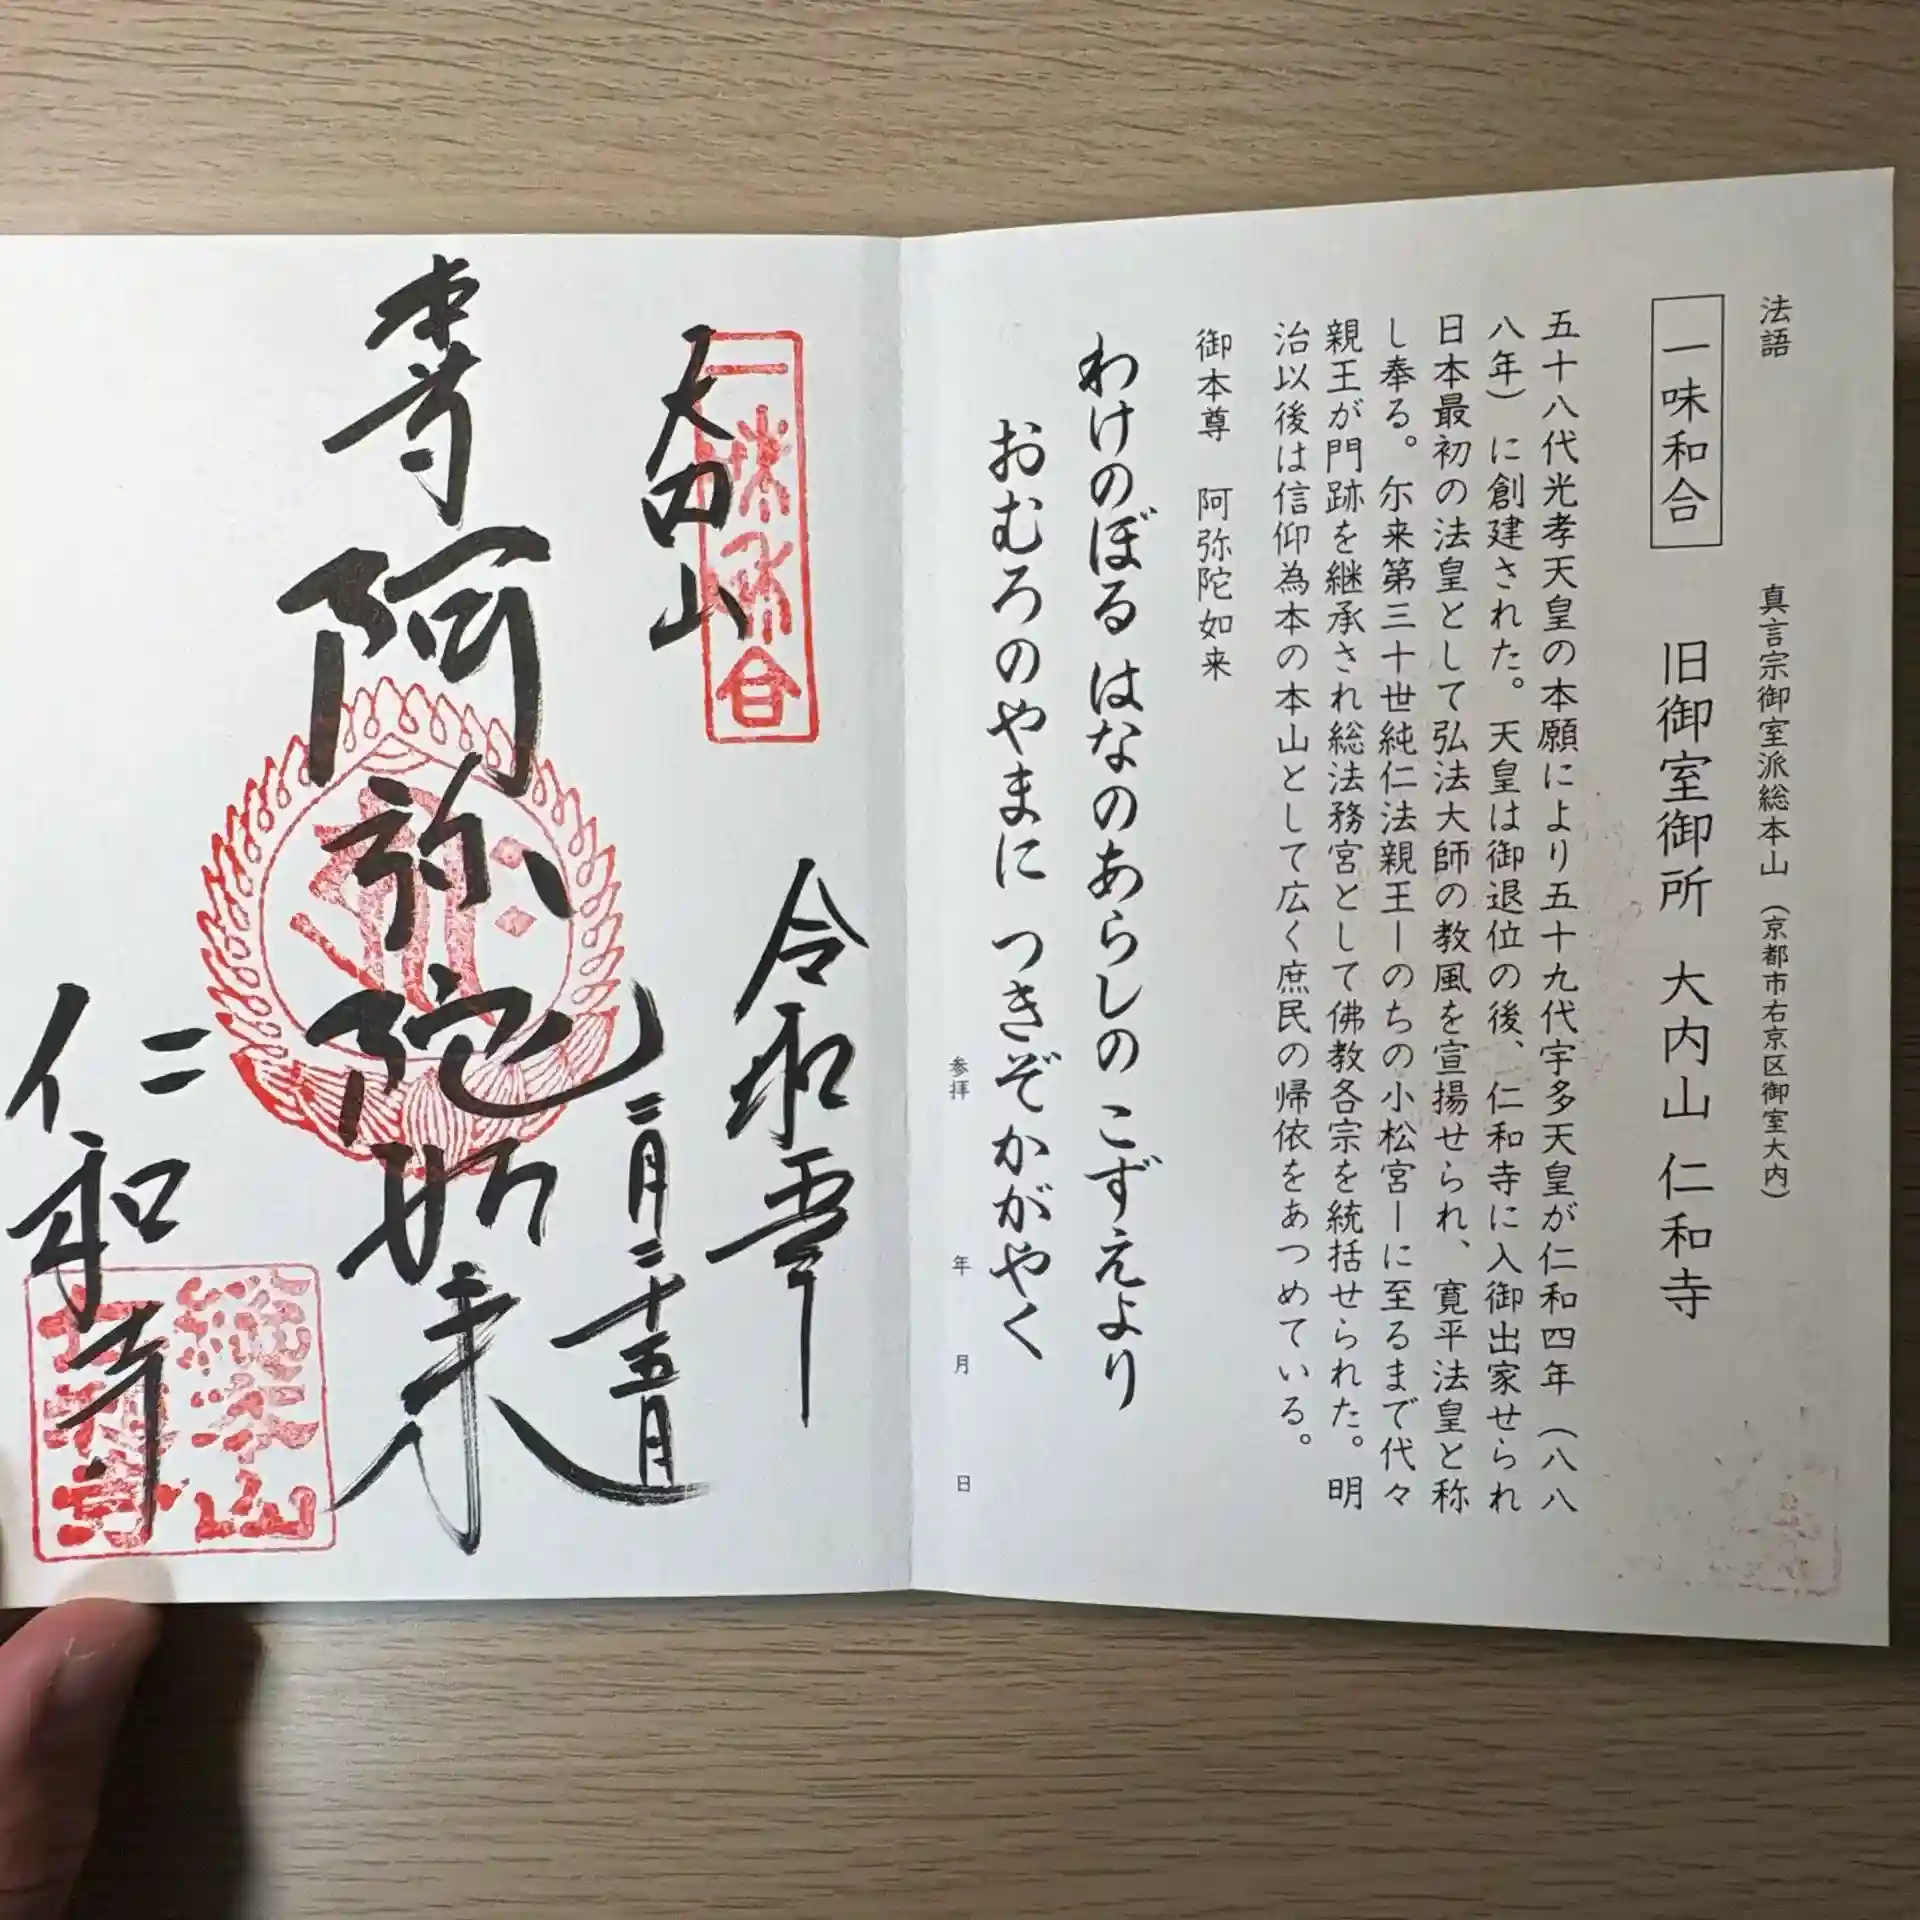 法語　真言宗御室派総本山（京都市右京区御室大内）
一味和合　旧御室御所 大内山 仁和寺
五十八代光孝天皇の本願により五十九代宇多天皇が仁和四年（八八
八年）に創建された。天皇は御退位の後、仁和寺に入御出家せられ
日本最初の法皇として弘法大師の教風を宣揚せられ、寛平法皇と称
し奉る。尓来第三十世純仁法親王ーのちの小松宮ーに至るまで代々
親王が門跡を継承され総法務宮として佛教各宗を統括せられた。明
治以後は信仰為本の本山として広く庶民の帰依をあつめている。
御本尊　阿弥陀如来
わけのぼる はなのあらしの こずえより
おむろのやまに つきぞかがやく
参拝　年　月　日
一味和合
大内山
令和
二月二十五日
阿弥陀如来
仁和寺
総本山
仁和寺